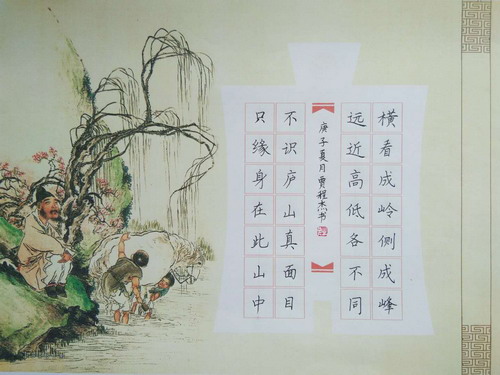 横看成岭侧成峰
远近高低各不同
庚子夏月贾程杰书
不识庐山真面目
只缘身在此山中